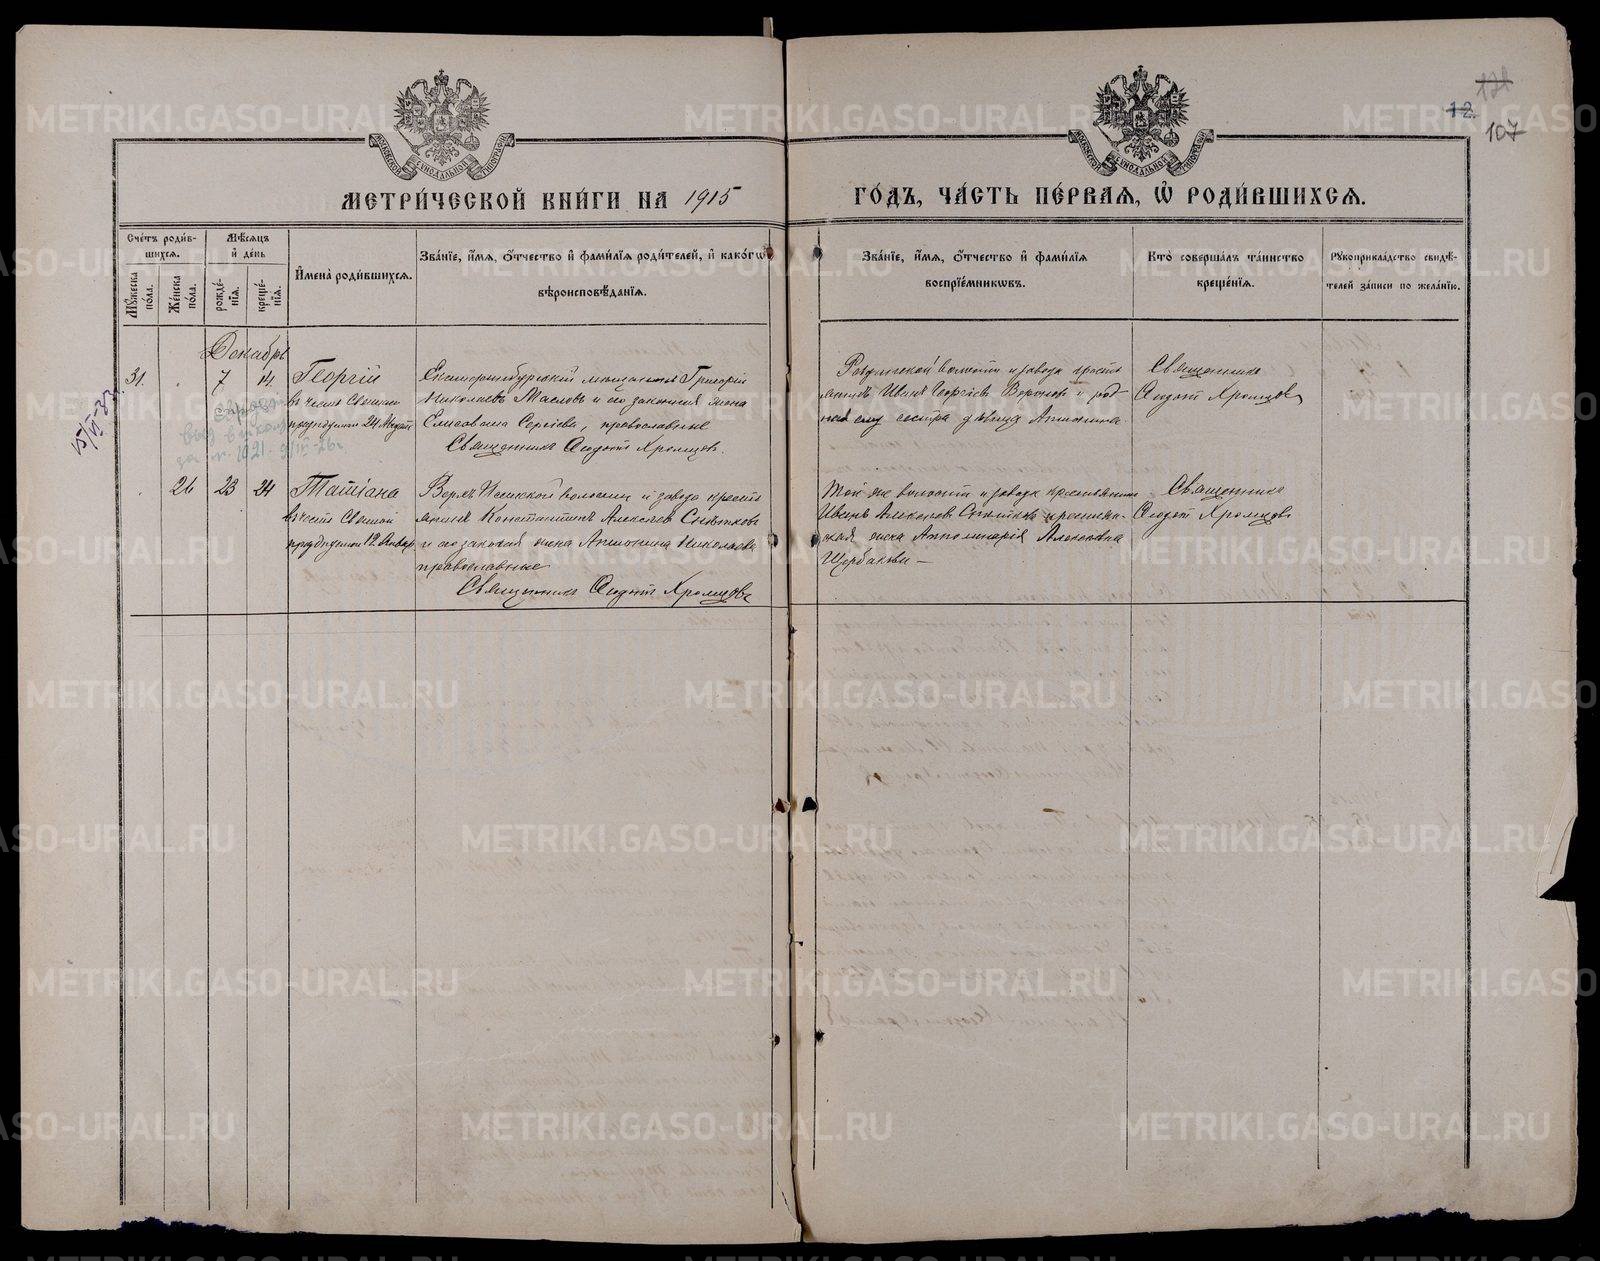 121
12.
107
МЕТРИ́ЧЕСКОЙ КНИ́ГИ НА 1915
ГО́ДЪ, ЧА́СТЬ ПЕ́РВАЯ, Ѡ РОДИ́ВШИХСЯ.
Сче́тъ роди́в-
шихся.
Му́жеска по́ла.
Же́нска по́ла.
Мѣ́сяцъ
и де́нь
рожде́-
нія.
креще́-
нія.
Имена̀ роди́вшихся.
Зва́ніе, и́мя, о́тчество и фами́лія роди́телей, и како́гѡ
вѣроисповѣ́данія.
Зва́ніе, и́мя, о́тчество и фами́лія
воспріе́мникѡвъ.
Кто̀ соверша́лъ та́инство
креще́нія.
Рукоприкла́дство свидѣ́-
телей за́писи по жела́нію.
Декабрь
31.
7
14
Георгій
въ честь Святаго
празднуемаго 24
Екатеринбургскій мѣщанинъ Григорій
Николаевъ Масловъ и его законная жена
Елисавета Сергіева, православные
Священникъ Ѳеодотъ Хромцовъ
волости и завода кресть
янинъ Иванъ Георгіевъ и род
ная ему сестра дѣвица Антонина
Священникъ
Ѳеодотъ Хромцовъ
26
23
24
Татіана
въ честь Святой
празднуемой 12 Января
Верхъ Исетской волости и завода кресть
янинъ Константинъ Алексѣевъ
и его законная жена Антонина Николаева
православные
Священникъ Ѳеодотъ Хромцовъ
Той же волости и завода крестьянинъ
Иванъ Алексѣевъ и крестьян-
ская жена Апполинарія Алексѣевна
Щербакова —
Священникъ
Ѳеодотъ Хромцовъ